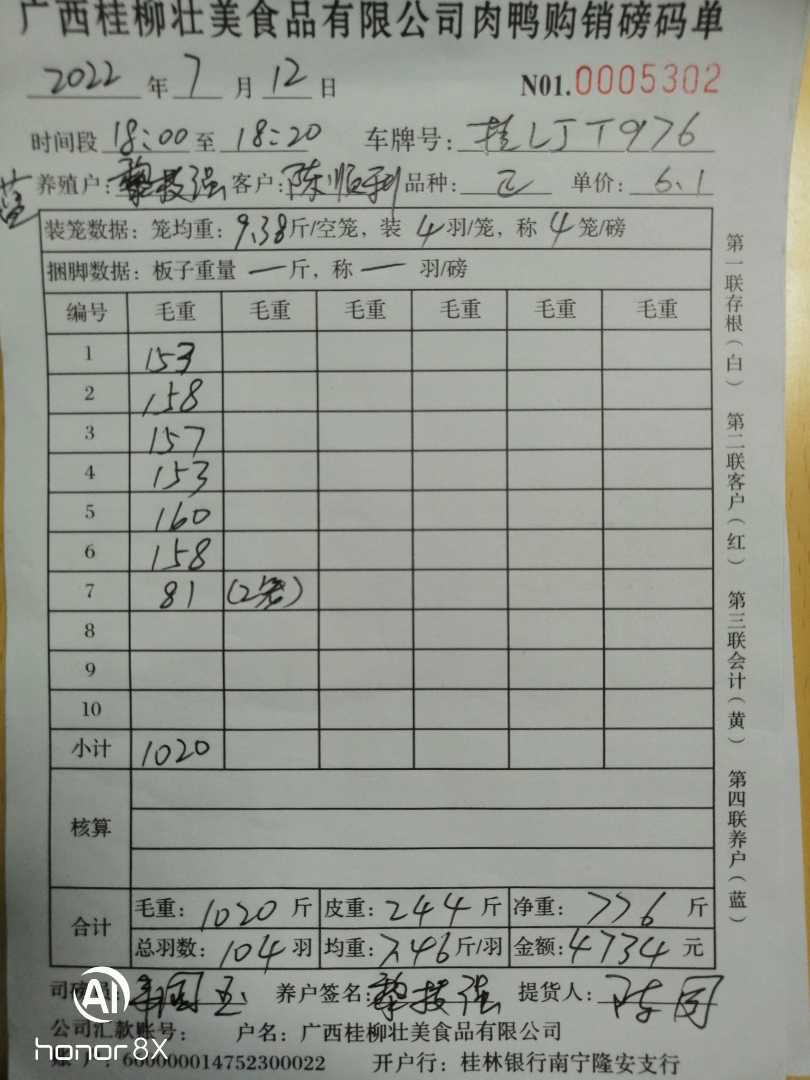 广西桂柳壮美食品有限公司肉鸭购销磅码单
2022 年 7 月 12 日 N01.0005302
时间段 18:00 至 18:20 车牌号: 桂LJT976
养殖户: 黎技强 客户: 陈顺利 品种: 单价: 6.1
装笼数据: 笼均重: 9.38 斤/空笼, 装 4 羽/笼, 称 4 笼/磅
捆脚数据: 板子重量 一 斤, 称 一 羽/磅
编号 毛重 毛重 毛重 毛重 毛重 毛重
1 153
2 158
3 157
4 153
5 160
6 158
7 81 (2笼)
8
9
10
小计 1020
核算
合计
毛重: 1020 斤 皮重: 244 斤 净重: 776 斤
总羽数: 104 羽 均重: 7.46 斤/羽 金额: 4734 元
养户签名: 黎技强 提货人:
公司汇款账号: 户名: 广西桂柳壮美食品有限公司
000000014752300022 开户行: 桂林银行南宁隆安支行
第一联存根(白) 第二联客户(红) 第三联会计(黄) 第四联养户(蓝)
AI
honor 8X